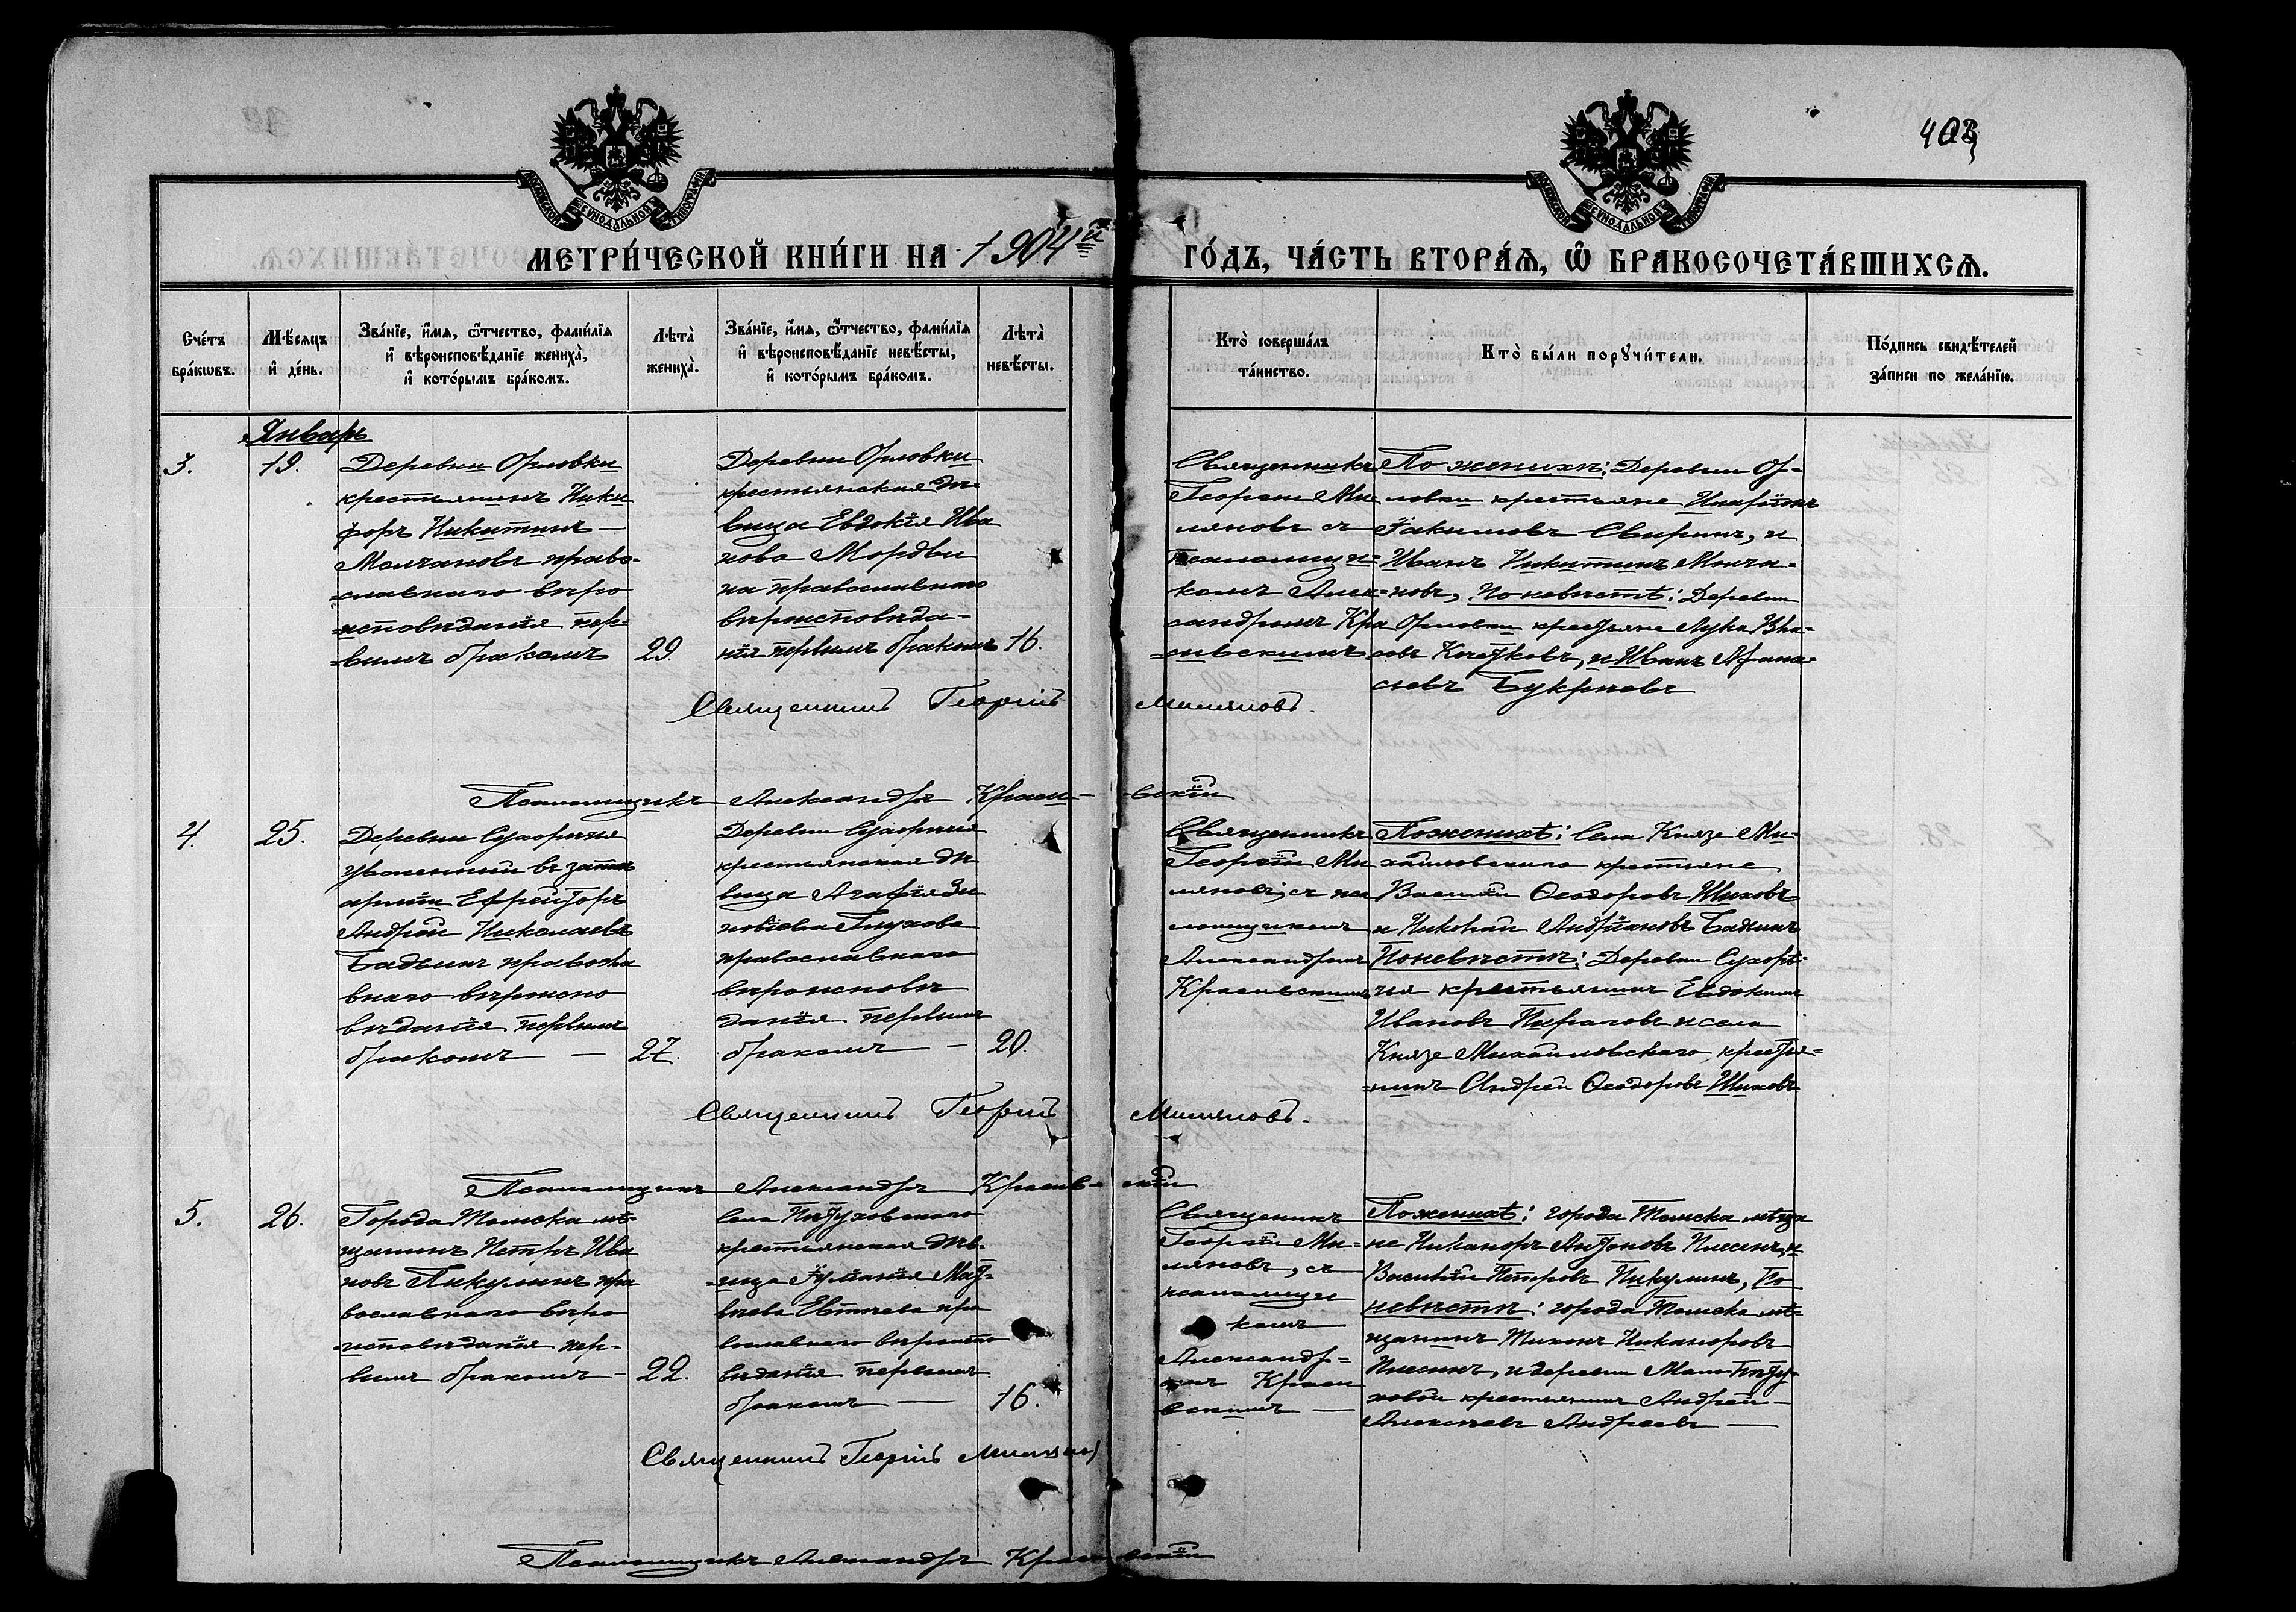 403
МОСКОВСКОЙ СѴНОДАЛЬНОЙ ТИПОГРАФІИ
МОСКОВСКОЙ СѴНОДАЛЬНОЙ ТИПОГРАФІИ
МЕТРИ́ЧЕСКОЙ КНИ́ГИ НА 1904й ГО́ДЪ, ЧА́СТЬ ВТОРА́Ѧ, Ѡ҆ БРАКОСОЧЕТА́ВШИХСѦ.
Сче́тъ
бра́кѡвъ.
Мѣ́сяцъ
и҆ де́нь.
Зва́нїе, и҆́мя, ѻ҆́тчество, фамѝлїя
и҆ вѣроисповѣ́данїе жениха̀,
и҆ кото́рымъ бра́комъ.
Лѣта̀
жениха̀.
Зва́нїе, и҆́мя, ѻ҆́тчество, фамѝлїя
и҆ вѣроисповѣ́данїе невѣ́сты,
и҆ кото́рымъ бра́комъ.
Лѣта̀
невѣ́сты.
Кто̀ соверша́лъ
та́инство.
Кто̀ бы́ли порꙋчи́тели.
По́дпись свидѣ́телей
за́писи по жела́нїю.
Январь
3.
19.
Деревни Орловки
крестьянинъ Ники
форъ Никитинъ —
Молчановъ право-
=славнаго вѣро
=исповѣданія пер-
=вымъ бракомъ
29.
Деревни Орловки
крестьянская дѣ-
вица Евдокія Ива
нова Мордви
на православнаго
вѣроисповѣда-
нія первымъ бракомъ
16.
Священникъ
Георгій Ми
ляновъ съ
псаломщи=
комъ Алек=
сандромъ Кра
=сивскимъ
По женихѣ: Деревни Ор-
ловки крестьяне Иларіонъ
Іакимовъ Свиринъ, и
Иванъ Никитинъ Молча-
новъ, По невѣстѣ: Деревни
Орловки крестьяне Лука Вла-
совъ Кочетковъ, и Иванъ Афана-
сьевъ Букрѣевъ
Священникъ Георгій Миляновъ.
Псаломщикъ Александръ Краси-вскій
4.
25.
Деревни Сухорѣчья
уволенный въ запас
арміи Ефрейторъ
Андрей Николаевъ
Бадьинъ правосла
внаго вѣроиспо
вѣданія первымъ
бракомъ —
27.
Деревни Сухорѣчья
крестьянская дѣ
вица Агафія Зи
новіева Глухова
православнаго
вѣроисповѣ
данія первымъ
бракомъ —
20.
Священникъ
Георгій Ми
ляновъ, съ пса
ломщикомъ
Александромъ
Красивскимъ
По женихѣ: Села Князе Ми-
хайловскаго крестьяне
Василій Ѳеодоровъ Шиховъ
и Николай Андріановъ Бадьинъ
По невѣстѣ: Деревни Сухорѣ-
чья крестьянинъ Евдокимъ
Ивановъ Пироговъ и села
Князе Михайловскаго крестья=
=нинъ Андрей Ѳеодоровъ Шиховъ
Священникъ Георгій Миляновъ.
Псаломщикъ Александръ Красив-скій
5.
26.
Города Томска мѣ-
щанинъ Петръ Ива
новъ Пикулинъ пра
вославнаго вѣро
исповѣданія пер-
вымъ бракомъ —
22.
Села Пѣтуховскаго
крестьянская дѣ-
=вица Іуліанія Мат-
вѣева Евтѣева пра
вославнаго вѣроиспо
вѣданія первымъ
бракомъ —
16.
Священникъ
Георгій Ми-
ляновъ, съ
псаломщи
комъ
Александр=
омъ Краси
вскимъ —
По женихѣ: города Томска мѣща
не Никаноръ Антоновъ Плесинъ, и
Василій Петровъ Пикулинъ, По
невѣстѣ: города Томска мѣ-
щанинъ Тихонъ Никаноровъ
Плесинъ, и деревни Мало Пѣту-
ховой крестьянинъ Андрей —
Алексѣевъ Андреевъ —
Священникъ Георгій Миляновъ
Псаломщикъ Александръ Красивскій